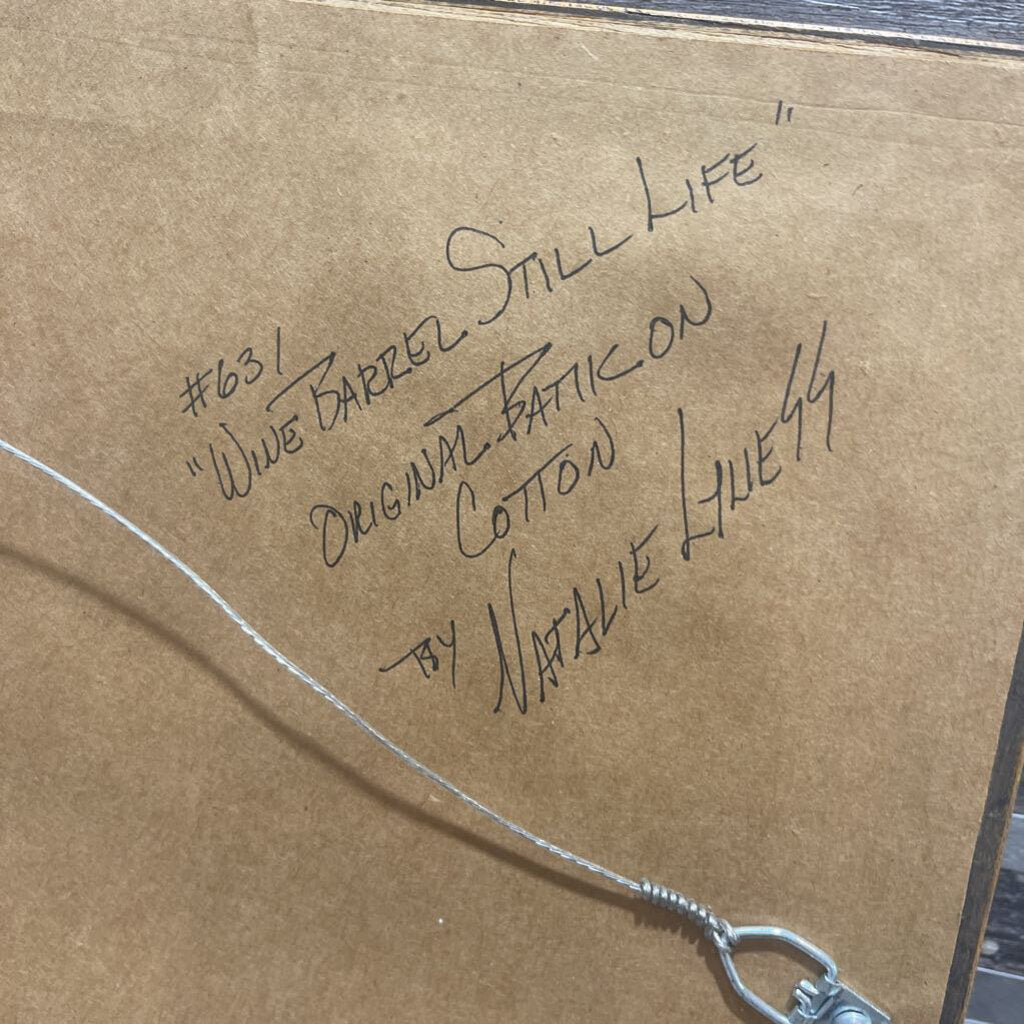 #631
"Wine Barrel Still Life"
Original Batik on
Cotton
By Natalie